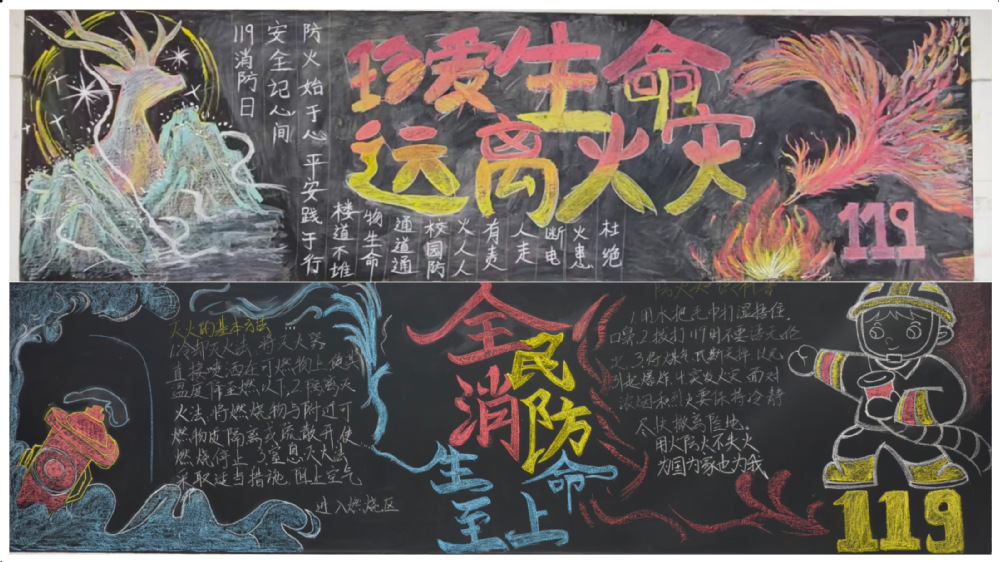 珍爱生命
远离火灾
防火始于心 平安践于行
安全记心间
119消防日
杜绝
火患
断电
人走
有责
火人人
校园防
通道通
物生命
楼道不堆
119
灭火的基本方法
1.冷却灭火法:将灭火器
直接喷洒在可燃物上使
温度降至燃以下,2.隔离灭
火法:将燃烧物与附近可
燃物质隔离或疏散开使
燃烧停止 3.窒息灭火法
采取适当措施,阻止空气
进入燃烧区
全民
消防
生命
至上
1.用水把毛巾打湿捂住
口鼻.2.拨打119用不要
引起爆炸.4.突发火灾 面对
浓烟和烈火要保持冷静
尽快撤离险地。
用火防火不失火
为国为家也为我
119